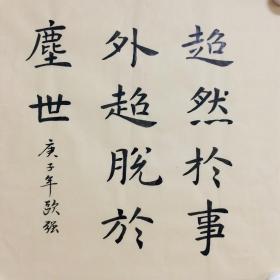 超然於事
外超脫於
塵世
庚子年歐强